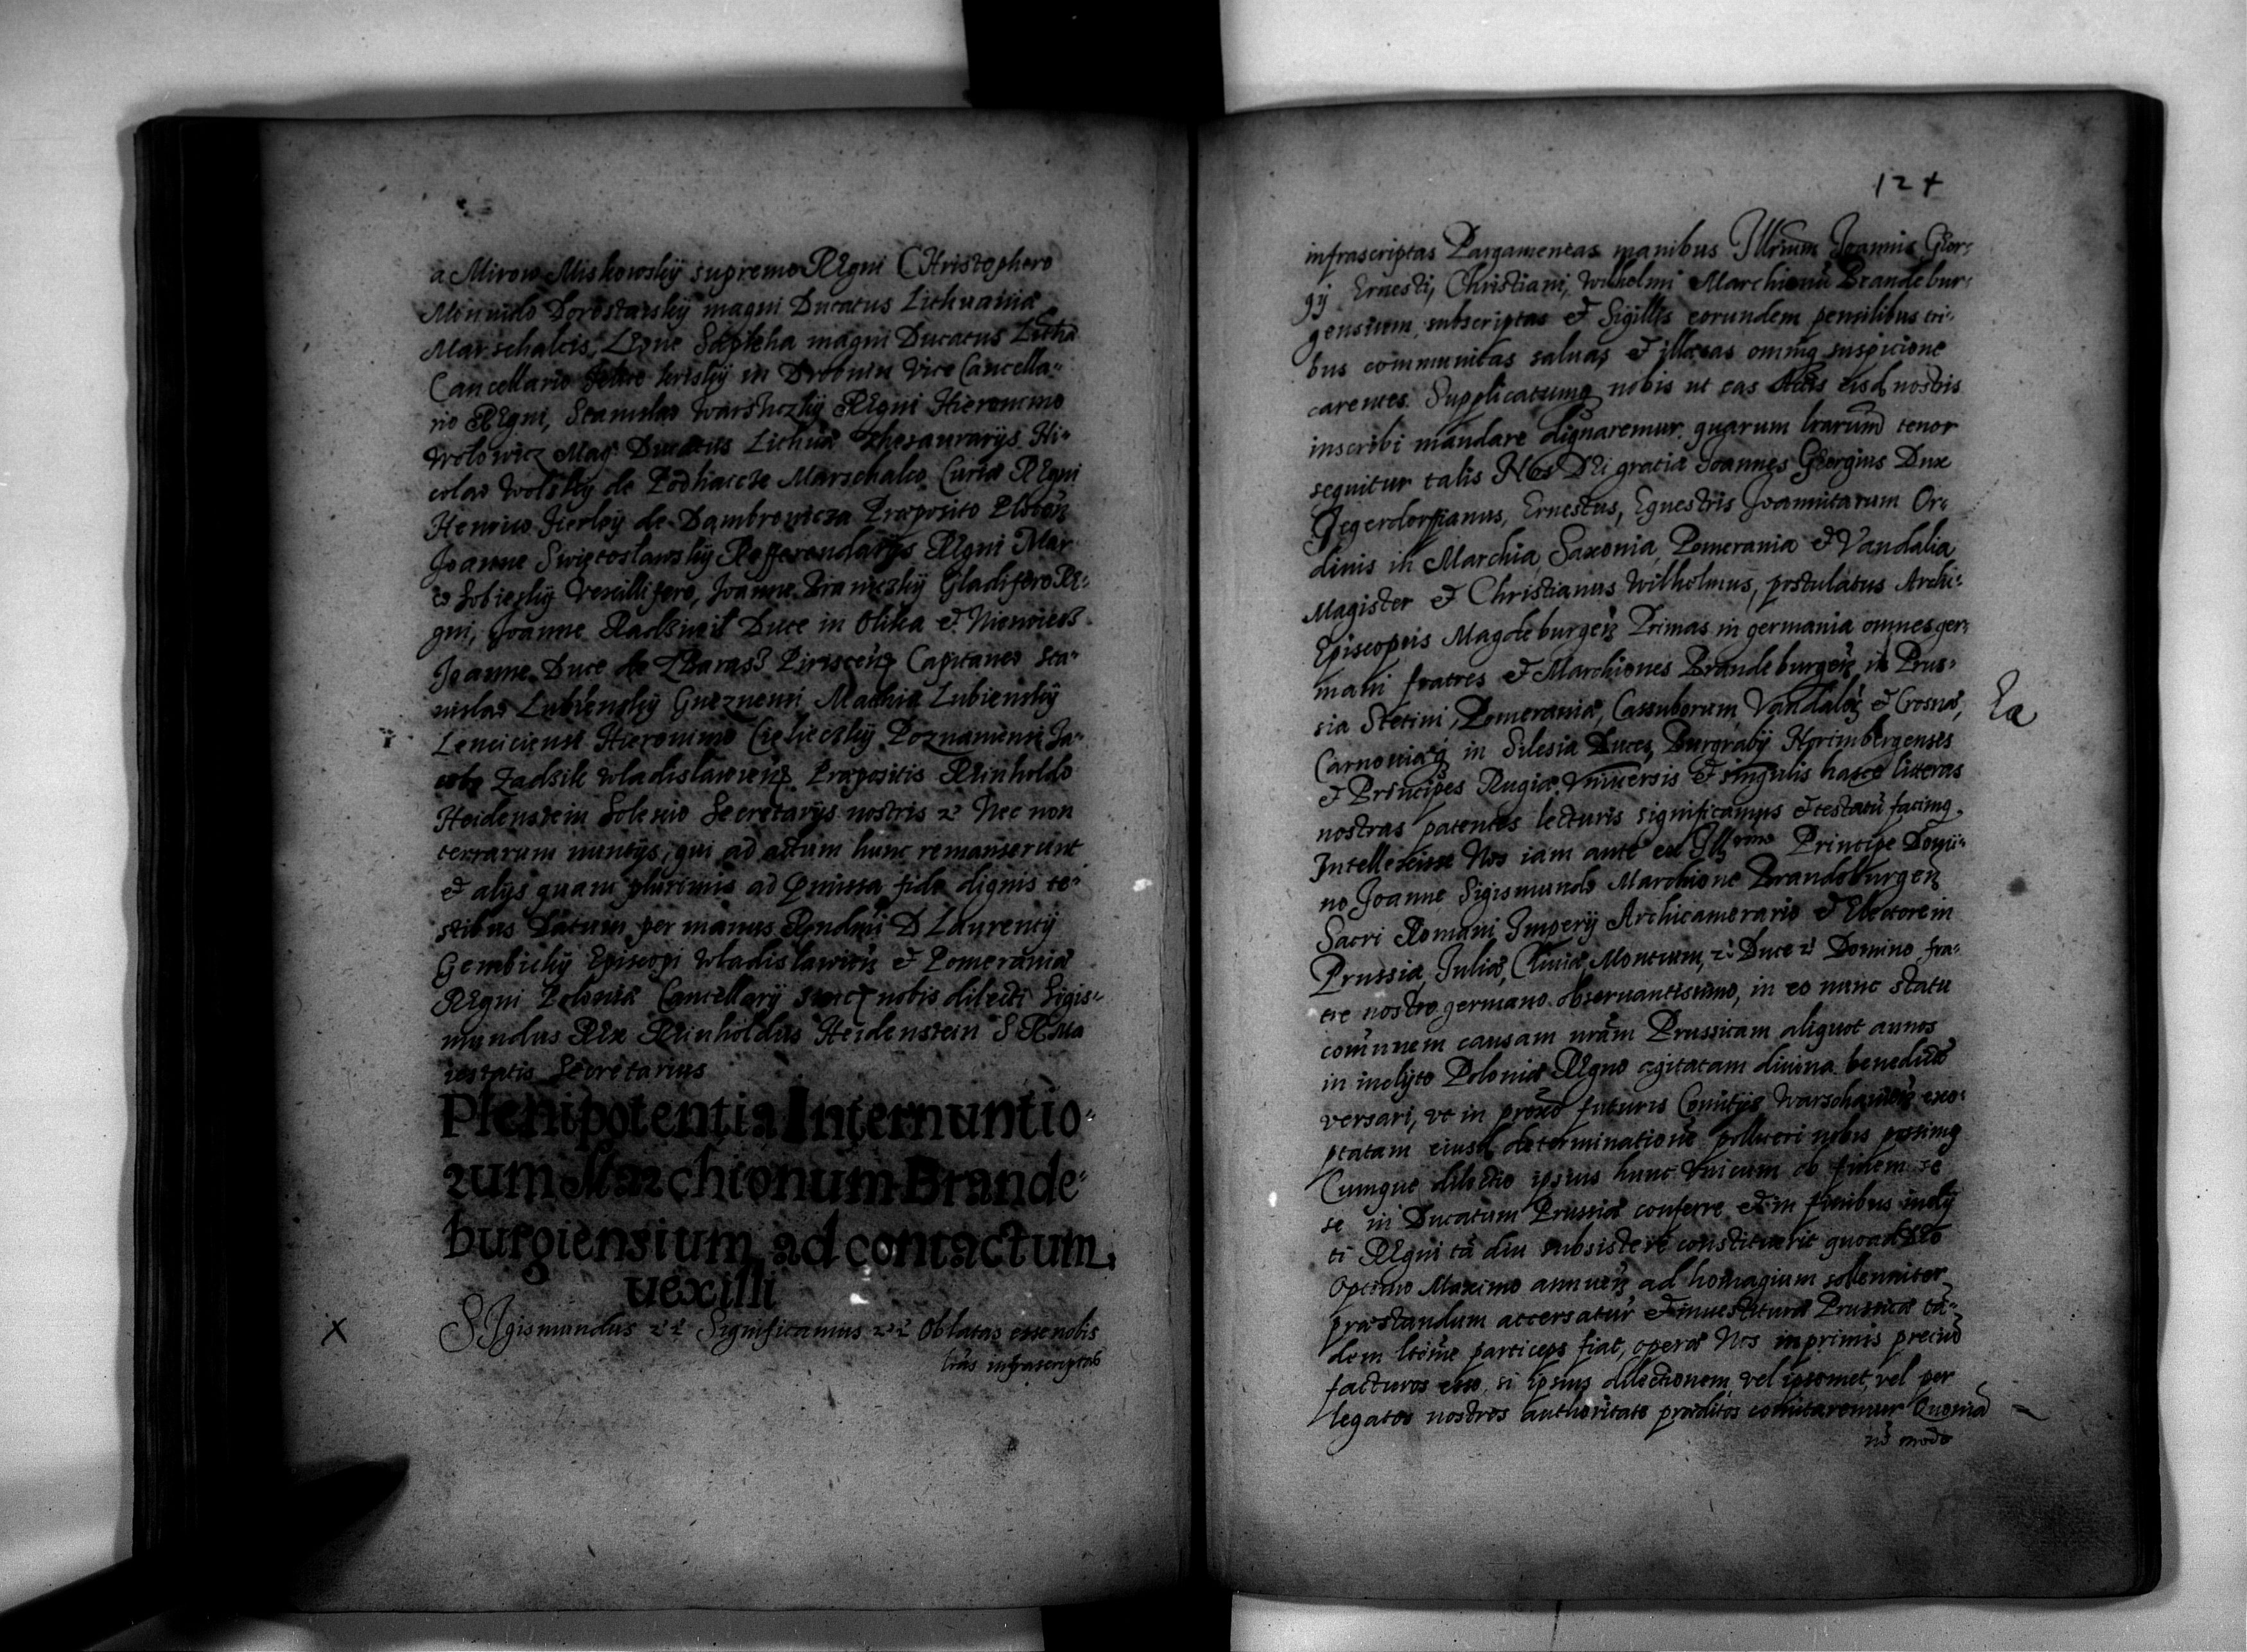 a Mirow Miskowskÿ supremo REgni CHristophero
Moniuido Dorostaiskÿ magni Ducatus Lithuaniæ
Marschalcis, Leone Sapieha magni Ducatus Litha
Cancellario Felice kriskÿ in Drobnin Vice Cancella-
rio REgni, Stanislao Warshiczkÿ REgni Hieronimo
Wolowicz Mag: Ducatus Lithua Thesaurarÿs Ni-
colao Wolskÿ de Podhaicze Marschalco Curiæ REgni
Henrico Firleÿ de Dambrowicza Præposito Plocen
Joanne Swiętosławskÿ Refferendarÿs REgni Mar
co Sobieskÿ Vexillifero, Joanne Braniczkÿ Gladifero RE-
gni, Joanne Radziuil Duce in Olika et Niewies
Joanne Duce de Zbaras Pinscen Capitaneo Sta-
nislao Lubienskÿ Gneznensi Mathia Lubienskÿ
Lenciciensi Hieronimo Cieliczkÿ Poznaniensi Ja-
cobo Zadzik Wladislawien Præpositis REinholdo
Heidenstein Solenio Secretarÿs nostris Nec non
terrarum nuntÿs, qui ad actum hunc remanserunt
et alÿs quam plurimis ad præmissa fide dignis te-
stibus Datum per manus Rndmi D Laurentÿ
Gembickÿ Episcopi Wladislawien et Pomeraniæ
REgni Poloniæ Cancellarÿ nobis dilecti Sigis-
mundus REx REinholdus Heidenstein S R Ma
iestatis Secretarius
Plenipotentia Internuntio-
rum Marchionum Brande-
burgiensium ad contactum
uexilli
X SJgismundus Significamus Oblatas esse nobis
lras infrascriptas
124
infrascriptas Pargameneas manibus Illrium Joannis Geor-
gÿ Ernesti, Christiani, Wilhelmi Marchionū Brandebur-
gensium subscriptas et Sigillis eorundem pensilibus tri-
bus communitas saluas et illæsas omniq suspicione
carentes. Supplicatumq nobis ut eas Actis eisd nostris
inscribi mandare dignaremur quarum lrarum tenor
sequitur talis Nos DEi gratia Joannes Georgius Dux
Jegerdorffianus, Ernestus, Equestris Joannitarum Or-
dinis in Marchia, Saxonia, Pomerania et Vandalia
Magister et Christianus Wilhelmus, postulatus Archi-
Episcopus Magdeburgen Primas in germania omnes ger-
mani fratres et Marchiones Brandeburgen in Prus-
sia Stetini, Pomeraniæ, Cassuborum, Vandaloz et Crosnæ,
Ea
Carnouiæq in Silesia Duces, Burgrabÿ Norimbergenses
et Principes Rugiæ Vniuersis et singulis hasce litteras
nostras patentes lecturis significamus et testatū facimq
Intellexisse Nos iam ante ex Illmo Principe Domi-
no Joanne Sigismundo Marchione Brandeburgen
Sacri Romani Imperÿ Archicamerario et Electore in
Prussia, Juliæ, Cliuiæ, Montium, Duce Domino fra-
tre nostro germano obseruantissimo, in eo nunc statu
comūnem causam nram Prussicam aliquot annos
in inclÿto Poloniæ REgno agitatam diuina benedictō
versari, vt in proxō futuris Comitÿs Warschauien exo-
ptatam eiusd determinationē polliceri nobis possimq
Cumque dilectio ipsius hunc vnicum ob finem se
se in Ducatum Prussiæ conferre et in finibus inclÿ
ti REgni tā diu subsistere constituerit quoad DEo
Optimo Maximo annuen ad homagium sollenniter
præstandum accersatur et inuestituræ Prussicæ tā-
dem ltime particeps fiat, operæ Nos inprimis preciū
facturos esse si ipsius dilectionem, vel ipsomet, vel per
legatos nostros authoritate præditos comitaremur Quoniā
nō modo